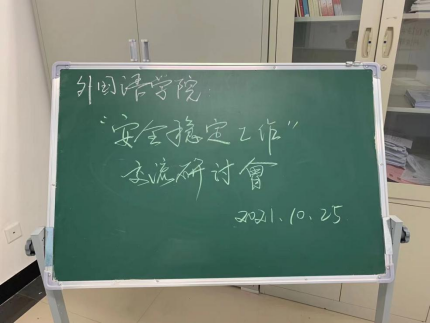 外国语学院
“安全稳定工作”
交流研讨會
2021.10.25